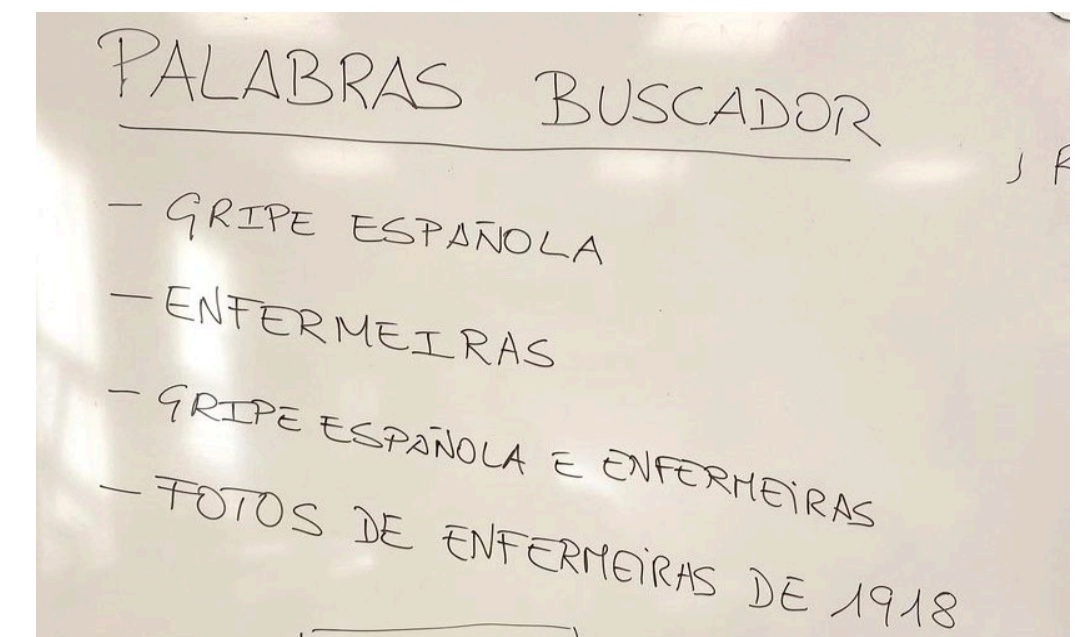 PALABRAS BUSCADOR
- GRIPE ESPAÑOLA
- ENFERMEIRAS
- GRIPE ESPAÑOLA E ENFERMEIRAS
- FOTOS DE ENFERMEIRAS DE 1918